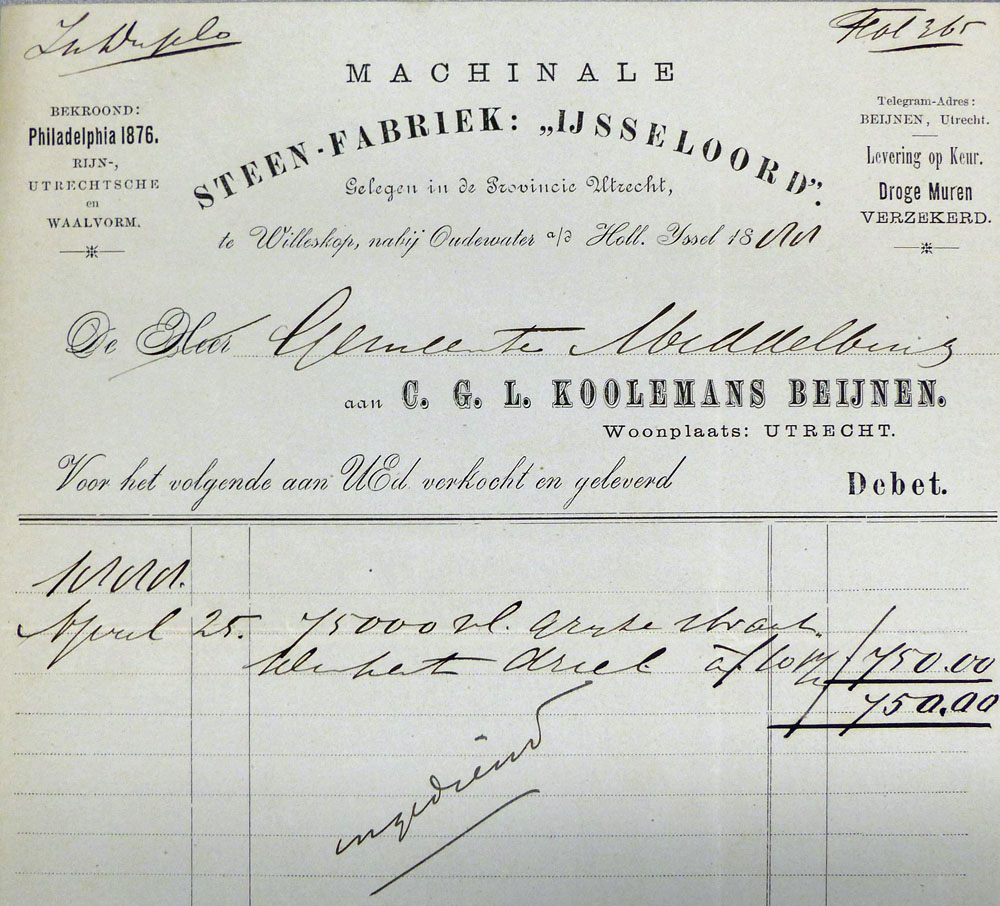 In Duplo
Fol 365
MACHINALE
STEEN-FABRIEK: „IJSSELOORD”.
Gelegen in de Provincie Utrecht,
te Willeskop, nabij Oudewater a/d Holl. Yssel 1888
BEKROOND:
Philadelphia 1876.
RIJN-,
UTRECHTSCHE
en
WAALVORM.
Telegram-Adres:
BEIJNEN, Utrecht.
Levering op Keur.
Droge Muren
VERZEKERD.
De Heer Gemeente Middelburg
aan C. G. L. KOOLEMANS BEIJNEN.
Woonplaats: UTRECHT.
Voor het volgende aan UEd verkocht en geleverd Debet.
1888.
April 25. 75000 vl. grijze straat
driel à f 10 f 750.00
f 750.00
ingediend